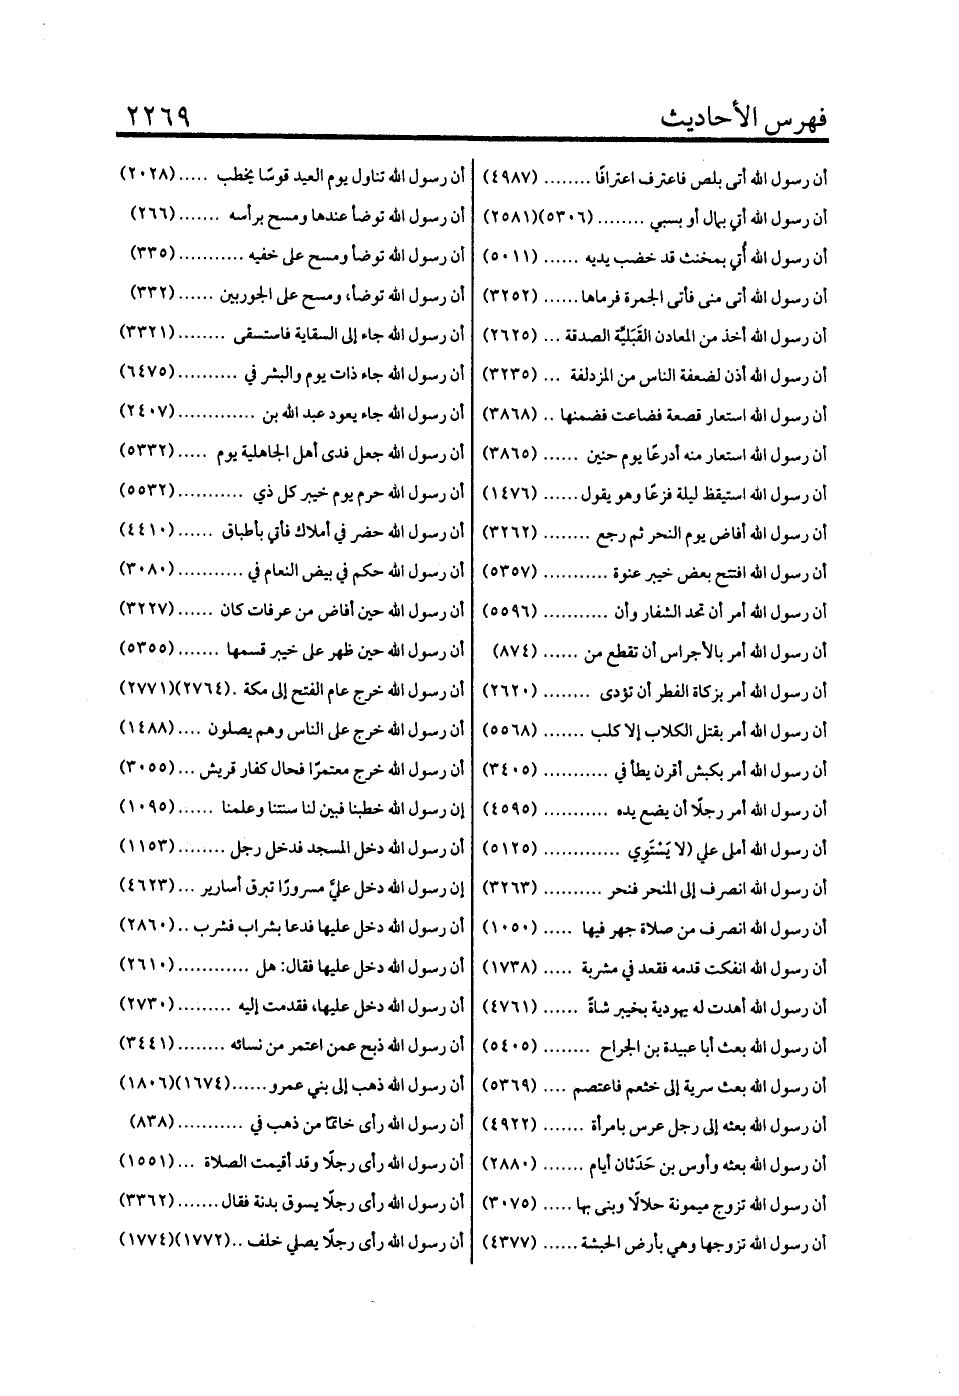 فهرس الأحاديث
٢٢٦٩
أن رسول الله أتى بلص فاعترف اعترافًا ........ (٤٩٨٧)
أن رسول الله أتي بمال أو بسبي ........ (٥٣٠٦)(٢٥٨١)
أن رسول الله أُتي بمخنث قد خضب يديه ...... (٥٠١١)
أن رسول الله أتى منى فأتى الجمرة فرماها...... (٣٢٥٢)
أن رسول الله أخذ من المعادن القَبَليَّة الصدقة ... (٢٦٢٥)
أن رسول الله أذن لضعفة الناس من المزدلفة ... (٣٢٣٥)
أن رسول الله استعار قصعة فضاعت فضمنها .. (٣٨٦٨)
أن رسول الله استعار منه أدرعًا يوم حنين ...... (٣٨٦٥)
أن رسول الله استيقظ ليلة فزعًا وهو يقول...... (١٤٧٦)
أن رسول الله أفاض يوم النحر ثم رجع ........ (٣٢٦٢)
أن رسول الله افتتح بعض خيبر عنوة ........... (٥٣٥٧)
أن رسول الله أمر أن تحد الشفار وأن ........... (٥٥٩٦)
أن رسول الله أمر بالأجراس أن تقطع من ...... (٨٧٤)
أن رسول الله أمر بزكاة الفطر أن تؤدى ........ (٢٦٢٠)
أن رسول الله أمر بقتل الكلاب إلا كلب ....... (٥٥٦٨)
أن رسول الله أمر بكبش أقرن يطأ في ........... (٣٤٠٥)
أن رسول الله أمر رجلًا أن يضع يده ........... (٤٥٩٥)
أن رسول الله أملى علي (لا يَسْتَوِي ............. (٥١٢٥)
أن رسول الله انصرف إلى المنحر فنحر .......... (٣٢٦٣)
أن رسول الله انصرف من صلاة جهر فيها ..... (١٠٥٠)
أن رسول الله انفكت قدمه فقعد في مشربة ..... (١٧٣٨)
أن رسول الله أهدت له يهودية بخيبر شاةً ...... (٤٧٦١)
أن رسول الله بعث أبا عبيدة بن الجراح ........ (٥٤٠٥)
أن رسول الله بعث سرية إلى خثعم فاعتصم .... (٥٣٦٩)
أن رسول الله بعثه إلى رجل عرس بامرأة ....... (٤٩٢٢)
أن رسول الله بعثه وأوس بن حَدَثان أيام ....... (٢٨٨٠)
أن رسول الله تزوج ميمونة حلالًا وبنى بها ..... (٣٠٧٥)
أن رسول الله تزوجها وهي بأرض الحبشة ...... (٤٣٧٧)
أن رسول الله تناول يوم العيد قوسًا يخطب ..... (٢٠٢٨)
أن رسول الله توضأ عندها ومسح برأسه ....... (٢٦٦)
أن رسول الله توضأ ومسح على خفيه ........... (٣٣٥)
أن رسول الله توضأ، ومسح على الجوربين ...... (٣٣٢)
أن رسول الله جاء إلى السقاية فاستسقى ........ (٣٣٢١)
أن رسول الله جاء ذات يوم والبشر في .......... (٦٤٧٥)
أن رسول الله جاء يعود عبد الله بن ............. (٢٤٠٧)
أن رسول الله جعل فدى أهل الجاهلية يوم ..... (٥٣٣٢)
أن رسول الله حرم يوم خيبر كل ذي ........... (٥٥٣٢)
أن رسول الله حضر في أملاك فأتي بأطباق ...... (٤٤١٠)
أن رسول الله حكم في بيض النعام في........... (٣٠٨٠)
أن رسول الله حين أفاض من عرفات كان ...... (٣٢٢٧)
أن رسول الله حين ظهر على خيبر قسمها ....... (٥٣٥٥)
أن رسول الله خرج عام الفتح إلى مكة .(٢٧٦٤)(٢٧٧١)
أن رسول الله خرج على الناس وهم يصلون .... (١٤٨٨)
أن رسول الله خرج معتمرًا فحال كفار قريش ... (٣٠٥٥)
إن رسول الله خطبنا فبين لنا سنتنا وعلمنا ...... (١٠٩٥)
أن رسول الله دخل المسجد فدخل رجل ........ (١١٥٣)
إن رسول الله دخل عليَّ مسرورًا تبرق أسارير ... (٤٦٢٣)
أن رسول الله دخل عليها فدعا بشراب فشرب .. (٢٨٦٠)
أن رسول الله دخل عليها فقال: هل ............ (٢٦١٠)
أن رسول الله دخل عليها، فقدمت إليه ......... (٢٧٣٠)
أن رسول الله ذبح عمن اعتمر من نسائه ........ (٣٤٤١)
أن رسول الله ذهب إلى بني عمرو......(١٦٧٤)(١٨٠٦)
أن رسول الله رأى خاتمًا من ذهب في ........... (٨٣٨)
أن رسول الله رأى رجلًا وقد أقيمت الصلاة ... (١٥٥١)
أن رسول الله رأى رجلًا يسوق بدنة فقال....... (٣٣٦٢)
أن رسول الله رأى رجلًا يصلي خلف ..(١٧٧٢)(١٧٧٤)